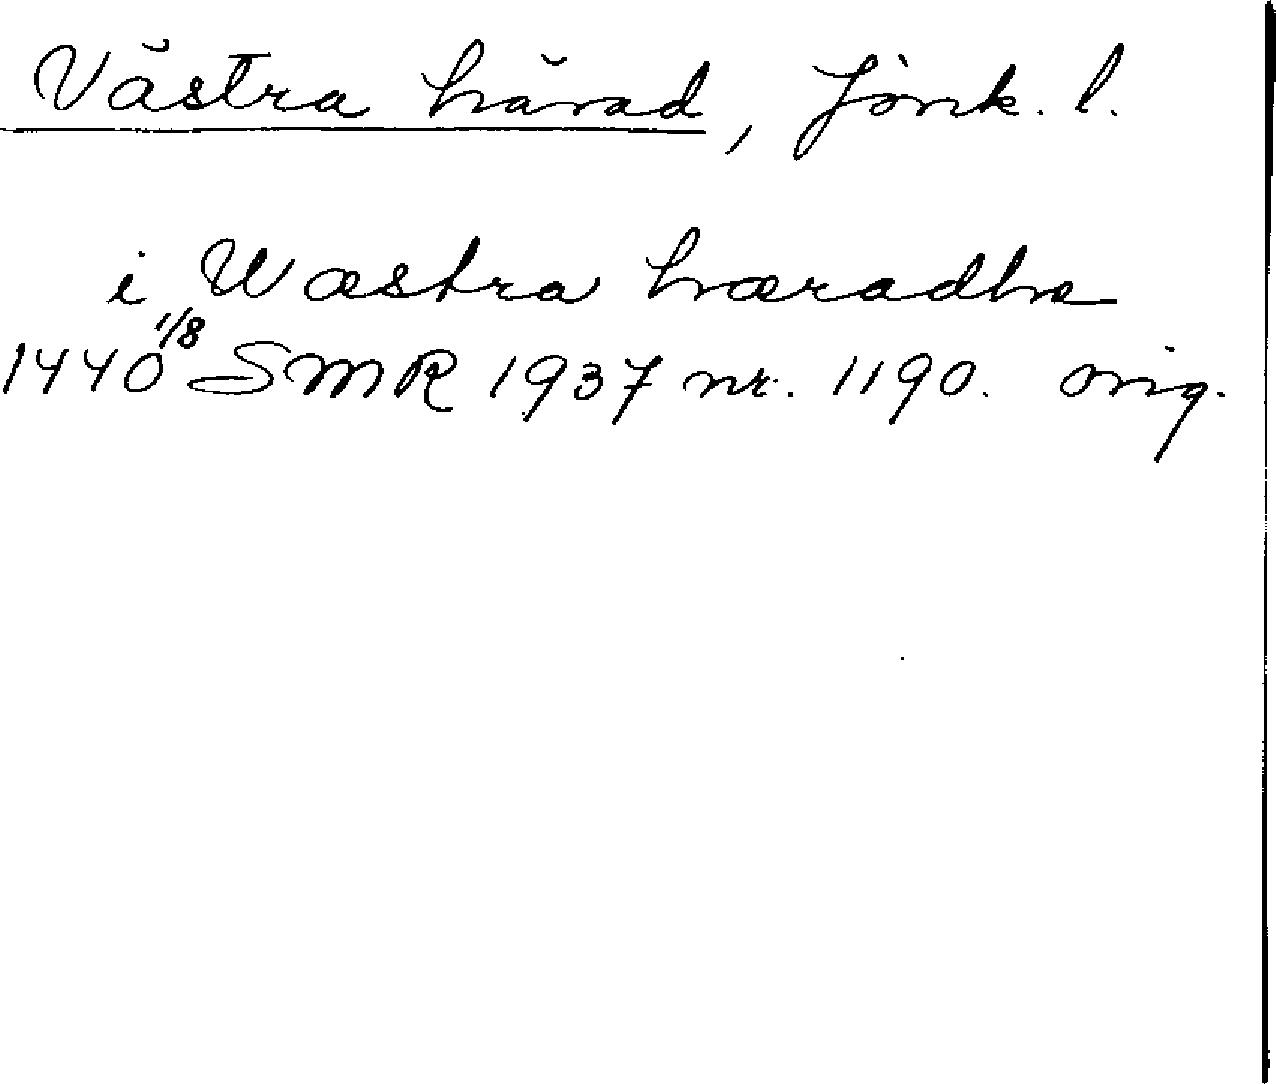 Västra härad, Jönk. l.
i Wæstra hæradhe
1440 1/8 SMR 1937 nr. 1190. orig.